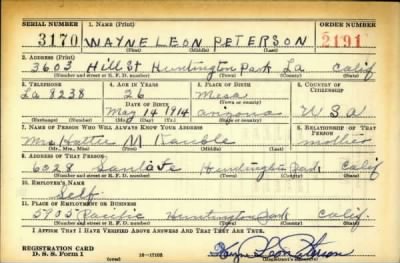 SERIAL NUMBER 1. NAME (Print) ORDER NUMBER
3170 WAYNE LEON PETERSON 2191
(First) (Middle) (Last)
2. ADDRESS (Print)
3603 Hill St Huntington Park La Calif
(Number and street or R. F. D. number) (Town) (County) (State)
3. TELEPHONE 4. AGE IN YEARS 5. PLACE OF BIRTH 6. COUNTRY OF CITIZENSHIP
La 8238 26 Mesa
DATE OF BIRTH (Town or county)
May 14 1914 arizona USA
(Exchange) (Number) (Mo.) (Day) (Yr.) (State or country)
7. NAME OF PERSON WHO WILL ALWAYS KNOW YOUR ADDRESS 8. RELATIONSHIP OF THAT PERSON
Mrs Hattie M mother
(Mr., Mrs., Miss) (First) (Middle) (Last)
9. ADDRESS OF THAT PERSON
6028 Santa Fe Huntington Park Calif
(Number and street or R. F. D. number) (Town) (County) (State)
10. EMPLOYER'S NAME
Self
11. PLACE OF EMPLOYMENT OR BUSINESS
5935 Pacific Huntington Park Calif.
(Number and street or R. F. D. number) (Town) (County) (State)
I AFFIRM THAT I HAVE VERIFIED ABOVE ANSWERS AND THAT THEY ARE TRUE.
REGISTRATION CARD
D. S. S. FORM 1 (over) 16-17105 Wayne Leon Peterson
(Registrant's signature)